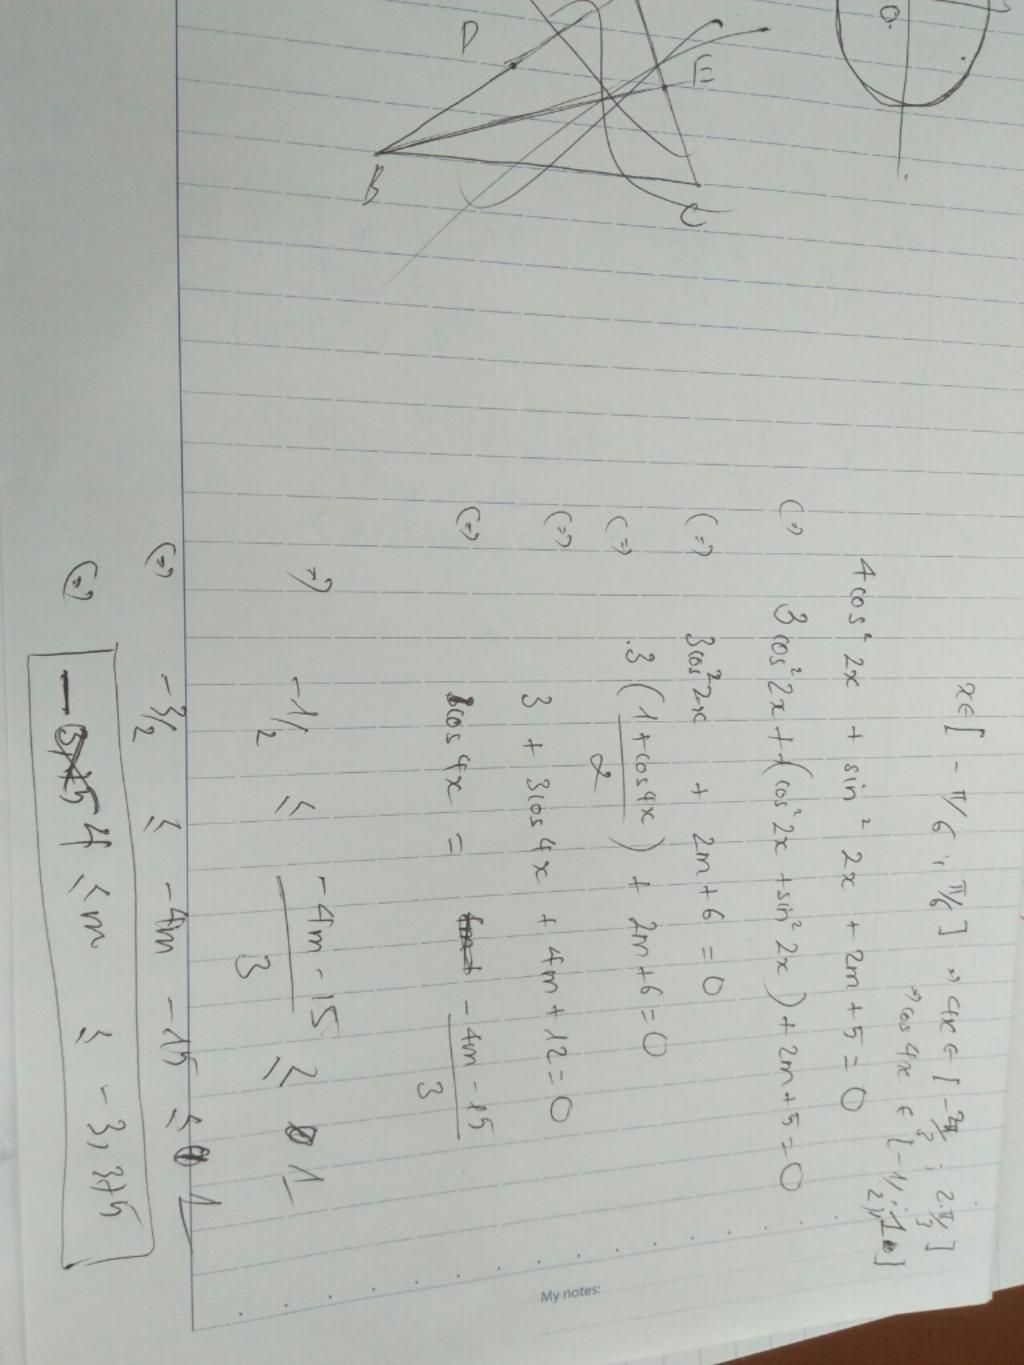 x ∈ [ - π/6 ; π/6 ] => 4x ∈ [ -2π/3 ; 2π/3 ]
=> cos 4x ∈ [ -1/2 ; 1 ]
4cos² 2x + sin² 2x + 2m + 5 = 0
(=) 3cos² 2x + (cos² 2x + sin² 2x) + 2m + 5 = 0
(=) 3cos² 2x + 2m + 6 = 0
(=) 3 (1 + cos 4x / 2) + 2m + 6 = 0
(=) 3 + 3cos 4x + 4m + 12 = 0
(=) cos 4x = -4m - 15 / 3
=) -1/2 ≤ -4m - 15 / 3 ≤ 1
(=) -3/2 ≤ -4m - 15 ≤ 1
(=) 4 ≤ m ≤ -3,375
D
E
B
C
O
My notes: